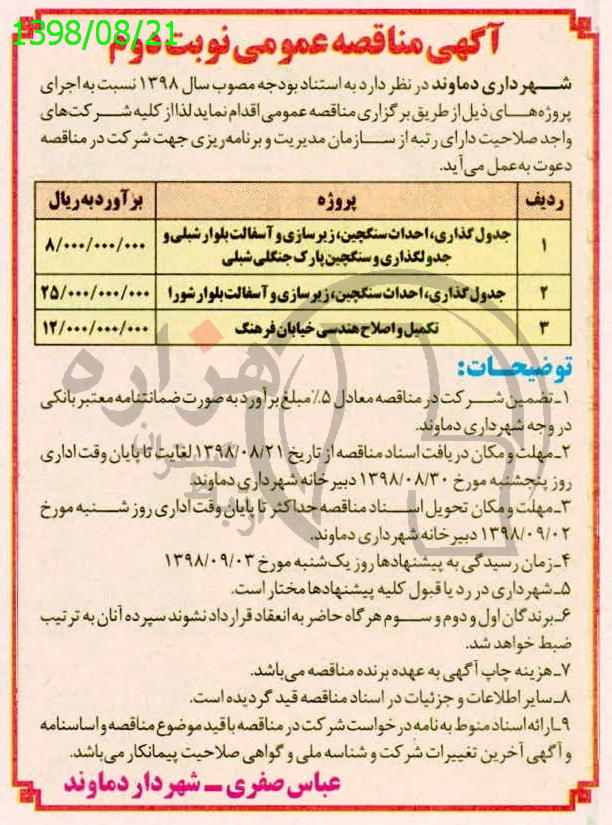 1398/08/21
آگهی مناقصه عمومی نوبت دوم
شهرداری دماوند در نظر دارد به استناد بودجه مصوب سال ۱۳۹۸ نسبت به اجرای
پروژه‌های ذیل از طریق برگزاری مناقصه عمومی اقدام نماید لذا از کلیه شرکت‌های
واجد صلاحیت دارای رتبه از سازمان مدیریت و برنامه‌ریزی جهت شرکت در مناقصه
دعوت به عمل می‌آید.
ردیف پروژه برآورد به ریال
۱ جدول گذاری، احداث سنگچین، زیرسازی و آسفالت بلوار شبلی و
جدولگذاری و سنگچین پارک جنگلی شبلی ۸/۰۰۰/۰۰۰/۰۰۰
۲ جدول گذاری، احداث سنگچین، زیرسازی و آسفالت بلوار شورا ۲۵/۰۰۰/۰۰۰/۰۰۰
۳ تکمیل و اصلاح هندسی خیابان فرهنگ ۱۲/۰۰۰/۰۰۰/۰۰۰
توضیحات:
۱ـ تضمین شرکت در مناقصه معادل ۵٪ مبلغ برآورد به صورت ضمانتنامه معتبر بانکی
در وجه شهرداری دماوند.
۲ـ مهلت و مکان دریافت اسناد مناقصه از تاریخ ۱۳۹۸/۰۸/۲۱ لغایت تا پایان وقت اداری
روز پنجشنبه مورخ ۱۳۹۸/۰۸/۳۰ دبیرخانه شهرداری دماوند.
۳ـ مهلت و مکان تحویل اسناد مناقصه حداکثر تا پایان وقت اداری روز شنبه مورخ
۱۳۹۸/۰۹/۰۲ دبیرخانه شهرداری دماوند.
۴ـ زمان رسیدگی به پیشنهادها روز یک‌شنبه مورخ ۱۳۹۸/۰۹/۰۳
۵ـ شهرداری در رد یا قبول کلیه پیشنهادها مختار است.
۶ـ برندگان اول و دوم و سوم هرگاه حاضر به انعقاد قرارداد نشوند سپرده آنان به ترتیب
ضبط خواهد شد.
۷ـ هزینه چاپ آگهی به عهده برنده مناقصه می‌باشد.
۸ـ سایر اطلاعات و جزئیات در اسناد مناقصه قید گردیده است.
۹ـ ارائه اسناد منوط به نامه درخواست شرکت در مناقصه با قید موضوع مناقصه و اساسنامه
و آگهی آخرین تغییرات شرکت و شناسه ملی و گواهی صلاحیت پیمانکار می‌باشد.
عباس صفری ـ شهردار دماوند
هزاره